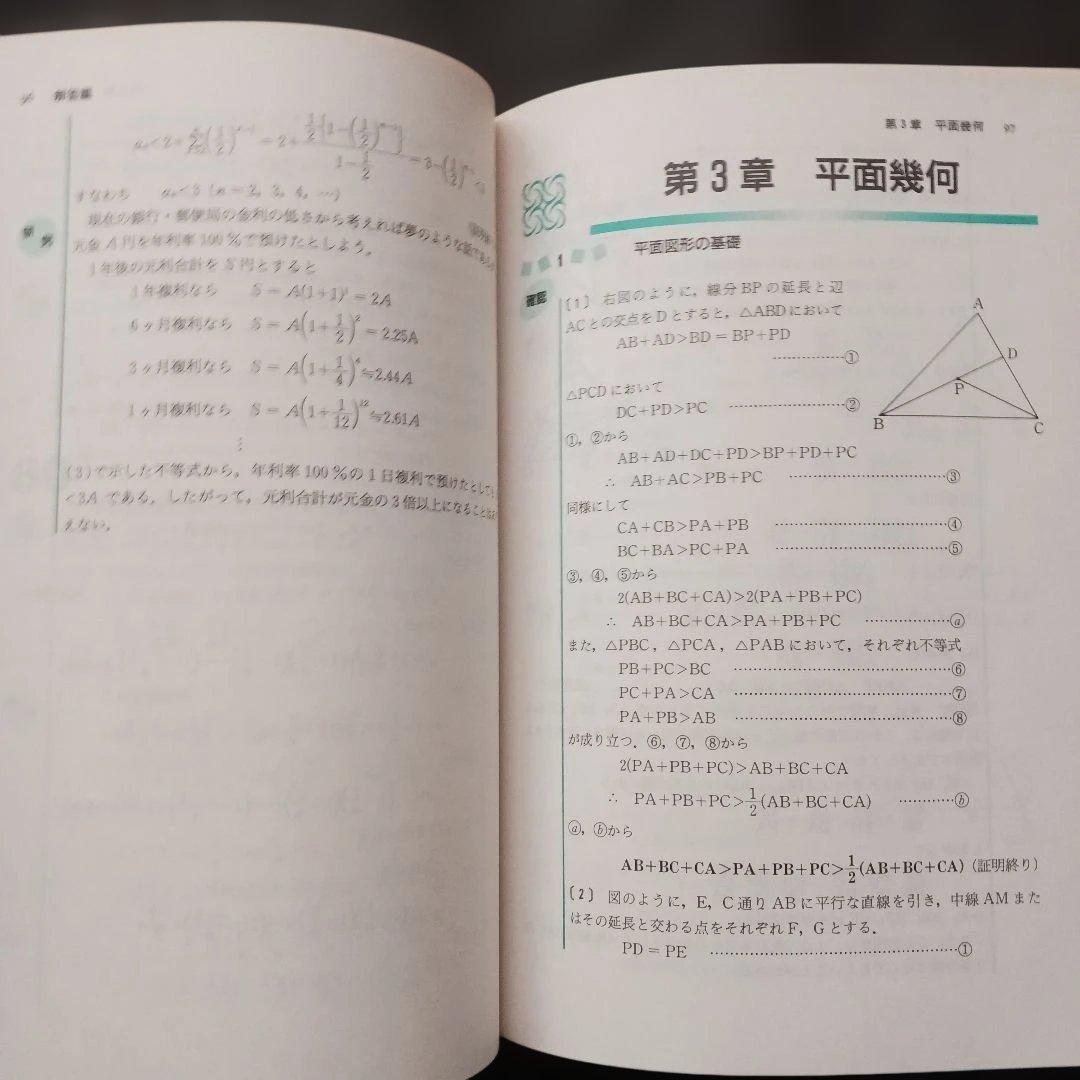 96 解答編
a_n<2+\sum_{k=2}^{n}(\frac{1}{2})^{k-1}=2+\frac{\frac{1}{2}[1-(\frac{1}{2})^{n-1}]}{1-\frac{1}{2}}=3-(\frac{1}{2})^{n-1}<3
すなわち a_n<3 (n=2, 3, 4, …)
現在の銀行・郵便局の金利の低さから考えれば夢のような話であるが
元金A円を年利率100%で預けたとしよう。
1年後の元利合計をS円とすると
1年複利なら S=A(1+1)^1=2A
6ヶ月複利なら S=A(1+\frac{1}{2})^2=2.25A
3ヶ月複利なら S=A(1+\frac{1}{4})^4≒2.44A
1ヶ月複利なら S=A(1+\frac{1}{12})^{12}≒2.61A
⋮
(3)で示した不等式から,年利率100%の1日複利で預けたとしても
<3Aである。したがって,元利合計が元金の3倍以上になることは
えない。
第3章 平面幾何 97
第3章 平面幾何
1 平面図形の基礎
確認
〔1〕 右図のように,線分BPの延長と辺
ACとの交点をDとすると,△ABDにおいて
AB+AD>BD=BP+PD
……………①
△PCDにおいて
DC+PD>PC ……………②
①,②から
AB+AD+DC+PD>BP+PD+PC
∴ AB+AC>PB+PC ……………③
同様にして
CA+CB>PA+PB ……………④
BC+BA>PC+PA ……………⑤
③,④,⑤から
2(AB+BC+CA)>2(PA+PB+PC)
∴ AB+BC+CA>PA+PB+PC ……………ⓐ
また,△PBC,△PCA,△PABにおいて,それぞれ不等式
PB+PC>BC ……………⑥
PC+PA>CA ……………⑦
PA+PB>AB ……………⑧
が成り立つ.⑥,⑦,⑧から
2(PA+PB+PC)>AB+BC+CA
∴ PA+PB+PC>\frac{1}{2}(AB+BC+CA) …………ⓑ
ⓐ,ⓑから
AB+BC+CA>PA+PB+PC>\frac{1}{2}(AB+BC+CA)(証明終り)
〔2〕 図のように,E,C通りABに平行な直線を引き,中線AMまた
はその延長と交わる点をそれぞれF,Gとする.
PD=PE ……………①
A
D
P
B
C